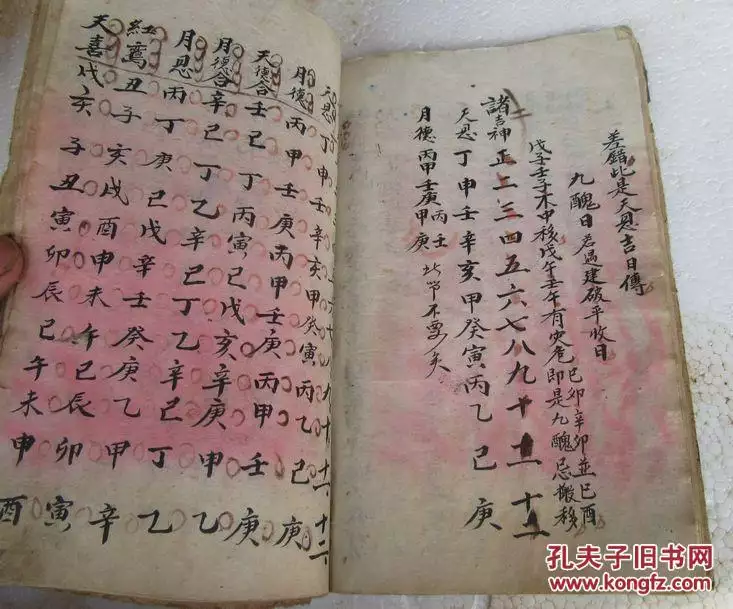 差錯此是天恩吉日傳
九醜日若遇建破平收日
戊子壬子木中移戊午壬午有灾危
己卯辛卯並己酉
即是九醜忌搬移
諸吉神正二三四五六七八九十十一十二
天恩丁申壬辛亥甲癸寅丙乙巳庚
月德丙甲壬庚丙壬甲庚
不要矣
天恩丁申壬辛亥甲癸寅丙乙巳庚
月德丙甲壬庚丙甲壬庚丙甲壬庚
天德合壬巳丁丙寅己戊亥辛庚申乙
月德合辛己丁乙辛己丁乙辛己丁乙
月恩丙丁庚己戊辛壬癸庚乙甲辛
紅鸞丑子亥戌酉申未午巳辰卯寅
天喜戌亥子丑寅卯辰巳午未申酉
孔夫子旧书网
www.kongfz.com